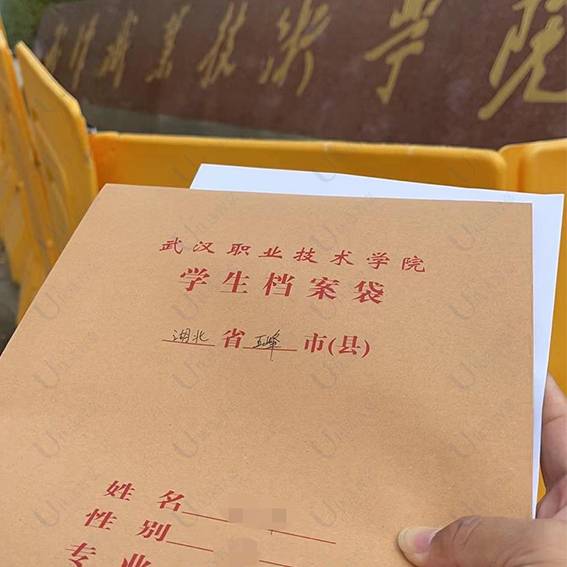 武汉职业技术学院
武汉职业技术学院
学生档案袋
湖北省五峰市(县)
姓名
性别
专业